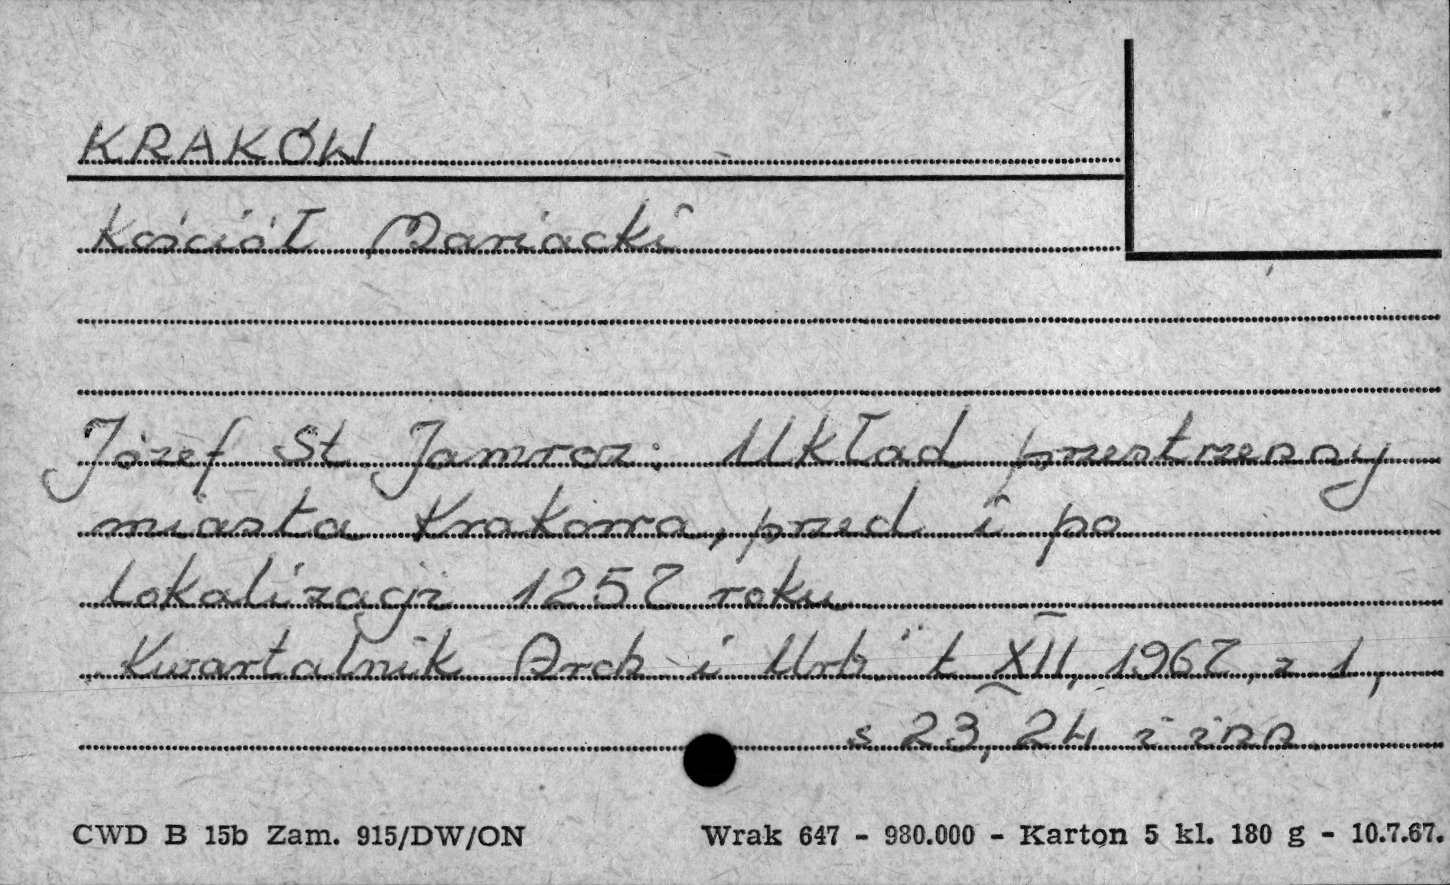 KRAKÓW
Kościół Mariacki
Józef St Jamroz: Układ przestrzenny
miasta Krakowa, przed i po
lokalizacji 1257 roku
„Kwartalnik Arch i Urb" t XII, 1967, z 1,
s 23, 24 i inn.
CWD B 15b Zam. 915/DW/ON Wrak 647 - 980.000 - Karton 5 kl. 180 g - 10.7.67.